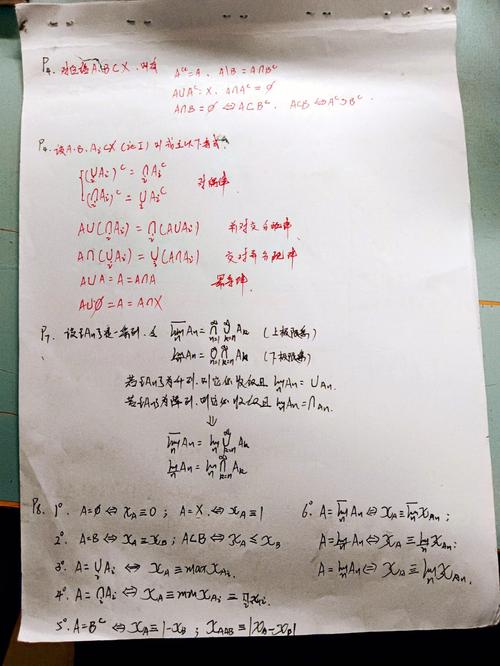 P4. 对任意A.B⊂X, 则有 A^cc=A, A\B=A∩B^c
A∪A^c=X, A∩A^c=∅
A∩B=∅⇔A⊂B^c, A⊂B⇔A^c⊃B^c
P4. 设A.B.Ai⊂X (i∈I) 则成立以下等式:
(∪Ai)^c = ∩Ai^c
(∩Ai)^c = ∪Ai^c 对偶律
A∪(∩Ai)=∩(A∪Ai) 并对交分配律
A∩(∪Ai)=∪(A∩Ai) 交对并分配律
A∪A=A=A∩A 幂等律
A∪∅=A=A∩X
P7. 设{An}是一集列, 令 \overline{lim}_n An=∩_{n=1}^∞ ∪_{k=n}^∞ Ak (上极限集)
\underline{lim}_n An=∪_{n=1}^∞ ∩_{k=n}^∞ Ak (下极限集)
若{An}为升列, 则它必收敛且 lim_n An=∪An.
若{An}为降列, 则它必收敛且 lim_n An=∩An.
⇓
\overline{lim}_n An=lim_n ∪_{k=n}^∞ Ak
\underline{lim}_n An=lim_n ∩_{k=n}^∞ Ak
P8. 1° A=∅⇔χ_A≡0; A=X⇔χ_A≡1
2° A=B⇔χ_A≡χ_B; A⊂B⇔χ_A≤χ_B
3° A=∪Ai⇔χ_A≡maxχ_Ai
4° A=∩Ai⇔χ_A≡minχ_Ai≡
5° A=B^c⇔χ_A≡1-χ_B; χ_{AΔB}≡|χ_A-χ_B|
6° A=\overline{lim}_n An⇔χ_A≡\overline{lim}_n χ_An;
A=\underline{lim}_n An⇔χ_A≡\underline{lim}_n χ_An;
A=lim_n An⇔χ_A≡lim_n χ_An.